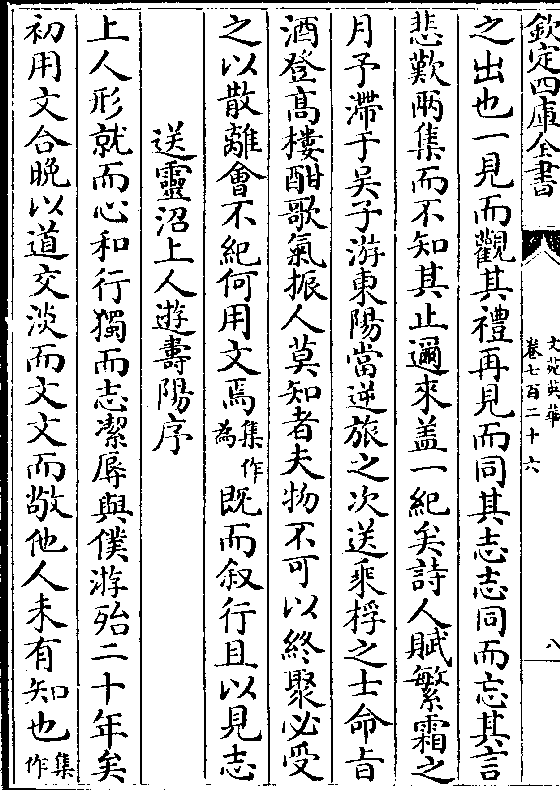 欽定四庫全書
文苑英華
卷七百二十六
八
之出也一見而觀其禮再見而同其志志同而忘其言
悲歎兩集而不知其止邇來盖一紀矣詩人賦繁霜之
月予滯于吴子游東陽當逆旅之次送乘桴之士命旨
酒登高樓酣歌氣振人莫知者夫物不可以終聚必受
之以散離會不紀何用文焉集作為既而叙行且以見志
送靈沼上人遊壽陽序
上人形就而心和行獨而志潔辱與僕游殆二十年矣
初用文合晚以道交淡而文文而敬他人未有知也集作